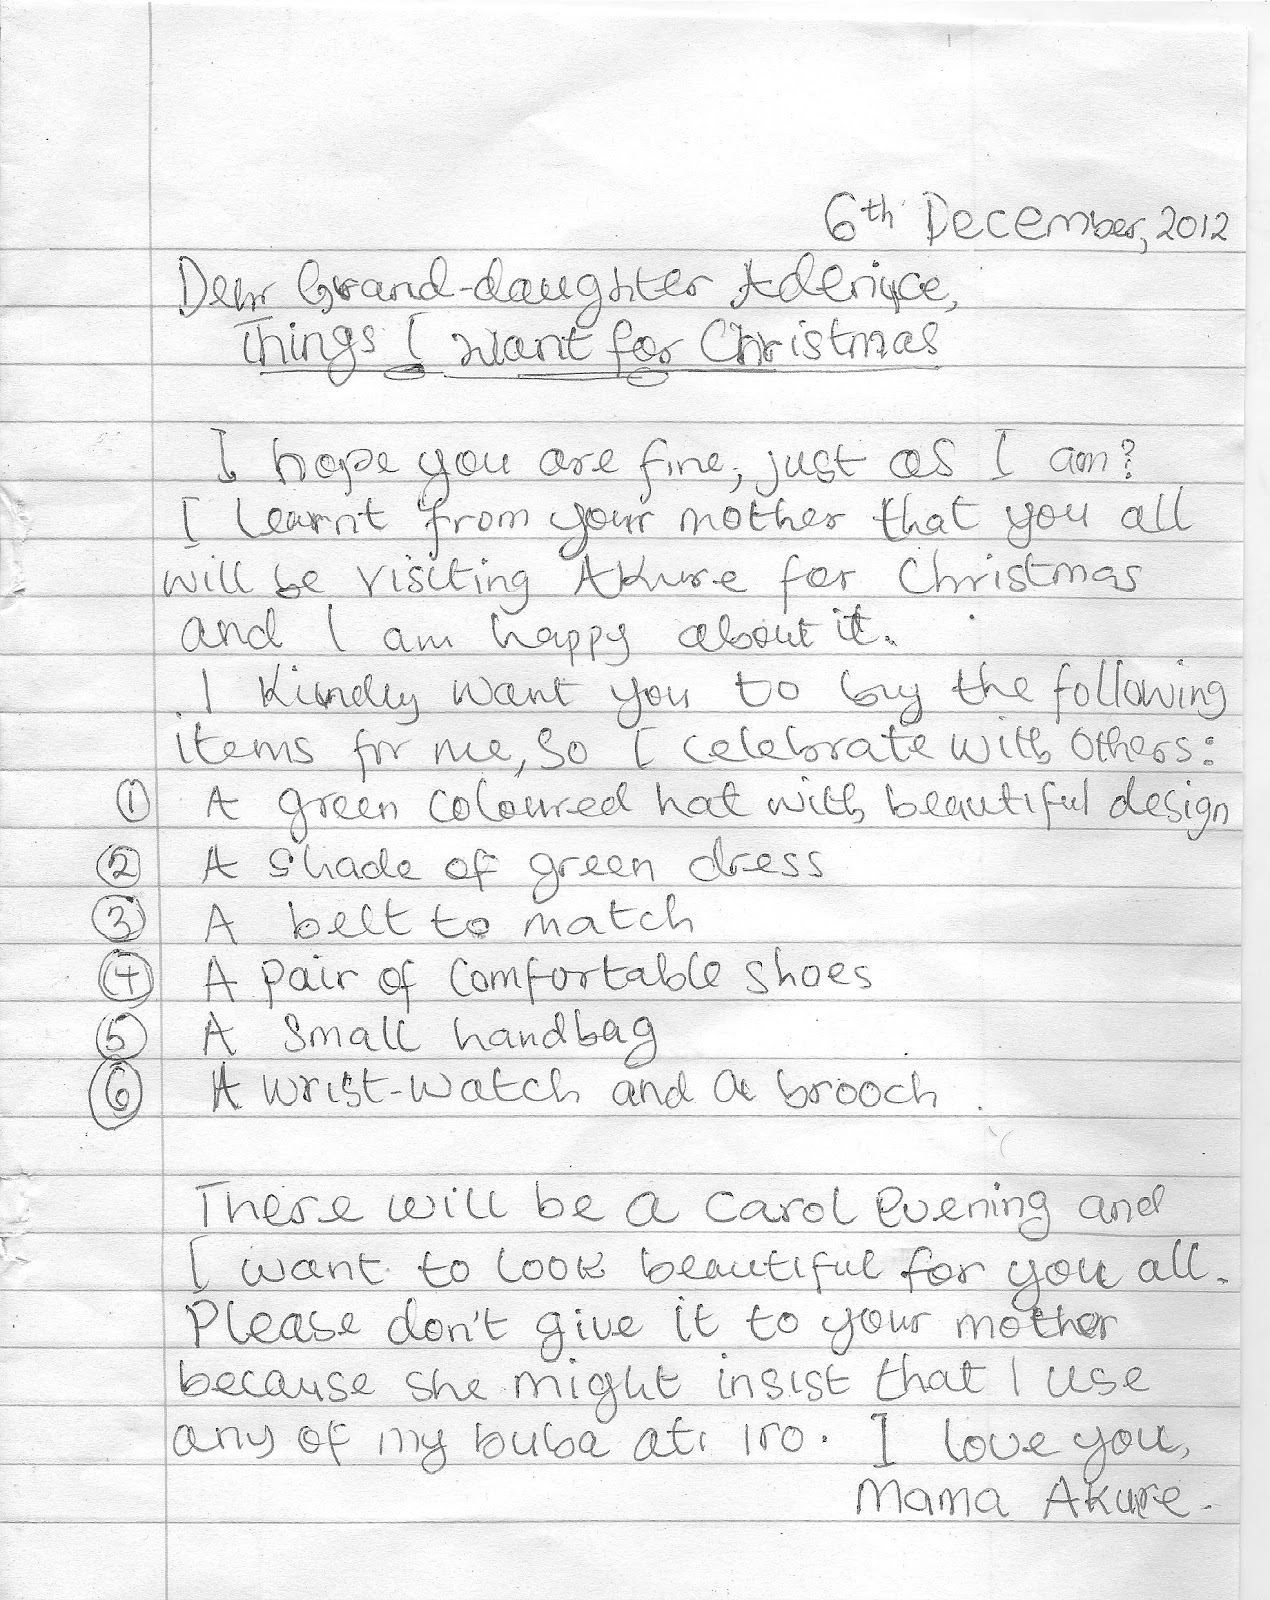 6th December, 2012
Dear Grand-daughter Adeniyce,
Things I want for Christmas
I hope you are fine, just as I am?
I learnt from your mother that you all
will be visiting Akure for Christmas
and I am happy about it.
I Kindly want you to buy the following
items for me, So I celebrate with others:
① A green coloured hat with beautiful design
② A shade of green dress
③ A belt to match
④ A pair of comfortable shoes
⑤ A small handbag
⑥ A wrist-watch and a brooch.
There will be a carol evening and
I want to look beautiful for you all.
Please don't give it to your mother
because she might insist that I use
any of my buba ati iro. I love you,
Mama Akure.